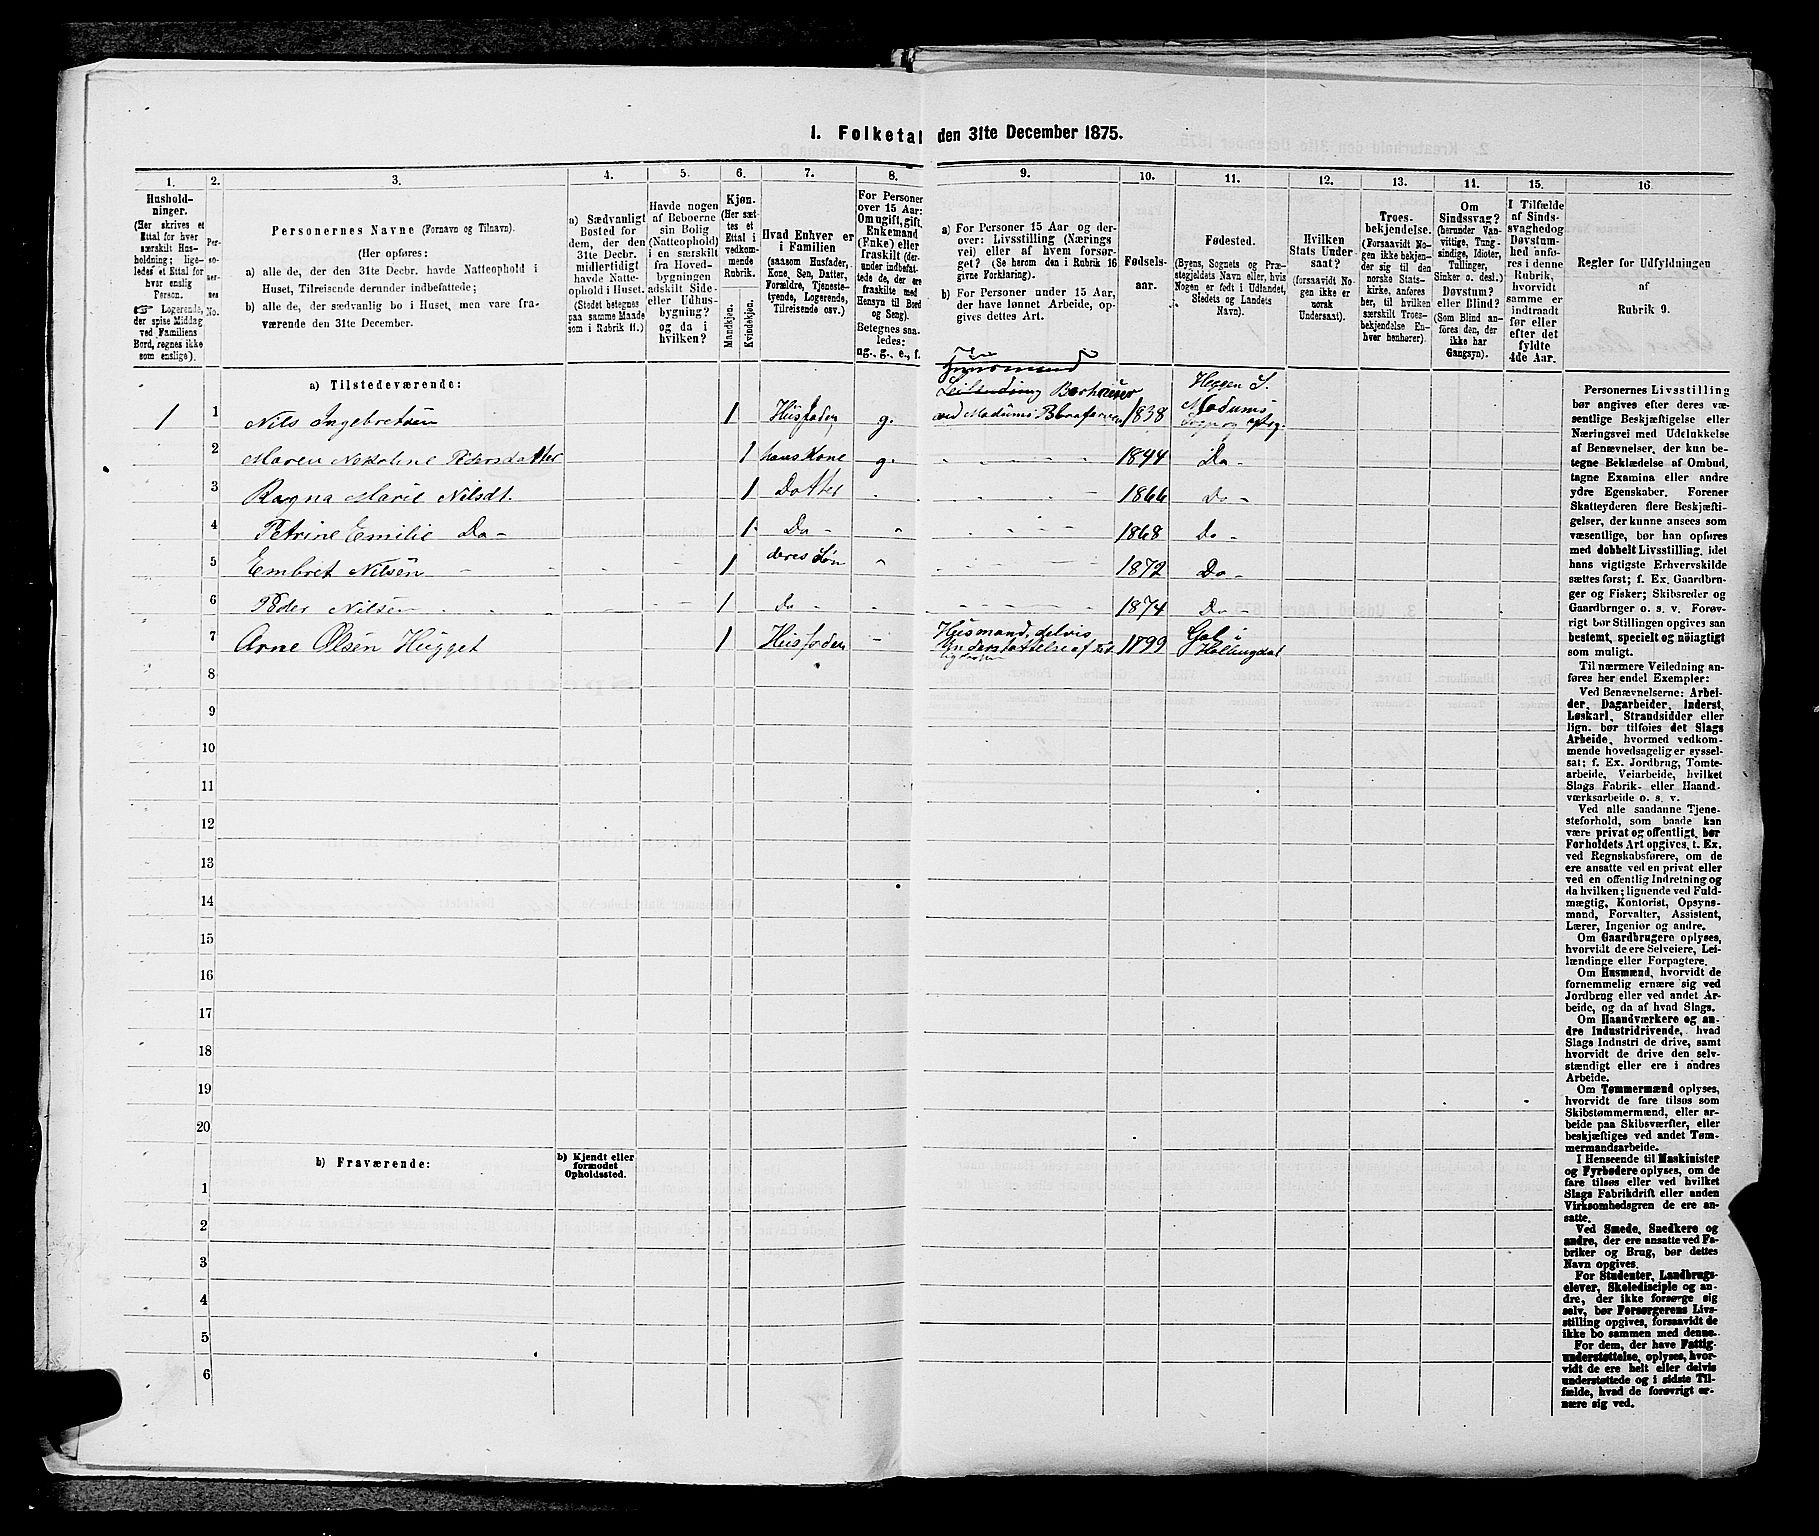 1. Folketal den 31te December 1875.
1. 2. 3. 4. 5. 6. 7. 8. 9. 10. 11. 12. 13. 14. 15. 16.
Husholdninger.
(Her skrives et
Ettal for hver
særskilt Husholdning;
ligeledes et Ettal for
hver enslig
Person.
Logerende,
der spise Middag
ved Familiens
Bord, regnes ikke
som enslige).
Personernes No.
Personernes Navne (Fornavn og Tilnavn).
(Her opføres:
a) alle de, der den 31te Decbr. havde Natteophold i
Huset, Tilreisende derunder indbefattede;
b) alle de, der sædvanlig bo i Huset, men vare fraværende
den 31te December.
a) Sædvanligt
Bosted for
dem, der den
31te Decbr.
midlertidigt
havde Natteophold
i Huset.
(Stedet betegnes
paa samme Maade
som i Rubrik 11.)
Havde nogen
af Beboerne
sin Bolig
(Natteophold)
i en særskilt
fra Hovedbygningen
adskilt Side-
eller Udhusbygning?
og da i
hvilken?
Kjøn.
(Her sættes
et
Ettal i
vedkommende
Rubrik.
Mandkjøn.
Kvindekjøn.
Hvad Enhver er
i Familien
(saasom Husfader,
Kone, Søn, Datter,
Forældre, Tjenestetyende,
Logerende,
Tilreisende osv.)
For Personer
over 15 Aar:
Om ugift, gift,
Enkemand
(Enke) eller
fraskilt (derunder
indbefattede
de, der ere
fraskilte med
Hensyn til Bord
og Seng).
Betegnes saaledes:
ug., g., e., f.
a) For Personer 15 Aar og derover:
Livsstilling (Næringsvei)
eller af hvem forsørget?
(Se herom den i Rubrik 16
givne Forklaring).
b) For Personer under 15 Aar,
der have lønnet Arbeide, opgives
dettes Art.
Fødselsaar.
Fødested.
(Byens, Sognets og Præstegjeldets
Navn eller, hvis
Nogen er født i Udlandet,
Stedets og Landets
Navn).
Hvilken
Stats Undersaat?
(forsaavidt Nogen
ikke er
norsk
Undersaat).
Troesbekjendelse.
(Forsaavidt Nogen
ikke bekjender
sig til den
norske Statskirke,
anføres
her, til hvilken
særskilt Troesbekjendelse
Enhver henhører).
Om
Sindssvag?
(herunder Vanvittige,
Tungsindige,
Idioter,
Tullinger,
Sinker o. desl.)
Døvstum?
eller Blind?
(Som Blind anføres
den, der
ikke har
Gangsyn).
I Tilfælde
af Sindssvaghed
og
Døvstumhed
anføres
i denne
Rubrik,
hvorvidt
samme er
indtraadt
før eller
efter det
fyldte
4de Aar.
Regler for Udfyldningen
af
Rubrik 9.
a) Tilstedeværende:
1 1 Nils Ingebretsen 1 Husfader g. Huusmand Leilending Berhauer ved Madums Blaafarve 1838 Heggen S. Modums
2 Maren Nekoline Pedersdatter 1 hans Kone g. 1844 Do-
3 Ragna Marie Nilsdt. 1 Datter 1866 Do-
4 Petrine Emilie Do- 1 Do- 1868 Do-
5 Embret Nilsen 1 deres Søn 1872 Do-
6 Peder Nilsen 1 Do- 1874 Do-
7 Arne Olsen Hugget 1 Husfader Husmand, delvis Understøttelse af 1799 Gol i Hallingdal
8
9
10
11
12
13
14
15
16
17
18
19
20
b) Fraværende:
b) Kjendt eller
formodet
Opholdssted.
1
2
3
4
5
6
Personernes Livsstilling
bør angives efter deres væsentlige
Beskjæftigelse eller
Næringsvei med Udelukkelse
af Benævnelser, der kun betegne
Beklædelse af Ombud,
tagne Examina eller andre
ydre Egenskaber. Forener
Skatteyderen flere Beskjæftigelser,
der kunne ansees som
væsentlige, bør han opføres
med dobbelt Livsstilling, idet
hans vigtigste Erhvervskilde
sættes først; f. Ex. Gaardbruger
og Fisker; Skibsreder og
Gaardbruger o. s. v. Forøvrigt
bør Stillingen opgives saa
bestemt, specielt og nøiagtigt
som muligt.
Til nærmere Veiledning anføres
her endel Exempler:
Ved Benævnelserne: Arbeider,
Dagarbeider, Inderst,
Løskarl, Strandsidder eller
lign. bør tilføies det Slags
Arbeide, hvormed vedkommende
hovedsagelig er sysselsat;
f. Ex. Jordbrug, Tomtearbeide,
Veiarbeide, hvilket
Slags Fabrik- eller Haandværksarbeide
o. s. v.
Ved alle saadanne Tjenesteforhold,
som baade kan
være privat og offentligt, bør
Forholdets Art opgives, t. Ex.
ved Regnskabsførere, om de
ere ansatte ved en privat eller
ved en offentlig Indretning og
da hvilken; lignende ved Fuldmægtig,
Kontorist, Opsynsmand,
Forvalter, Assistent,
Lærer, Ingeniør og andre.
Om Gaardbrugere oplyses,
hvorvidt de ere Selveiere, Leilændinge
eller Forpagtere.
Om Husmænd, hvorvidt de
fornemmelig ernære sig ved
Jordbrug eller ved andet Arbeide,
og da af hvad Slags.
Om Haandværkere og andre
Industridrivende, hvad
Slags Industri de drive, samt
hvorvidt de drive den selvstændigt
eller ere i andres
Arbeide.
Om Tømmermænd oplyses,
hvorvidt de fare tilsøs som
Skibstømmermænd, eller arbeide
paa Skibsværfter, eller
beskjæftiges ved andet Tømmermandsarbeide.
I Henseende til Maskinister
og Fyrbødere oplyses, om de
fare tilsøs eller ved hvilket
Slags Fabrikdrift eller anden
Virksomhedsgren de ere ansatte.
Ved Smede, Snedkere og
andre, der ere ansatte ved Fabriker
og Brug, bør dettes
Navn opgives.
For Studenter, Landbrugselever,
Skoledisciple og andre,
der ikke forsørge sig
selv, bør Forsørgerens Livsstilling
opgives, forsaavidt de
ikke bo sammen med denne.
For dem, der have Fattigunderstøttelse,
oplyses, hvorvidt
de ere helt eller delvis
understøttede og i sidste Tilfælde,
hvad de forøvrigt ernære
sig ved.